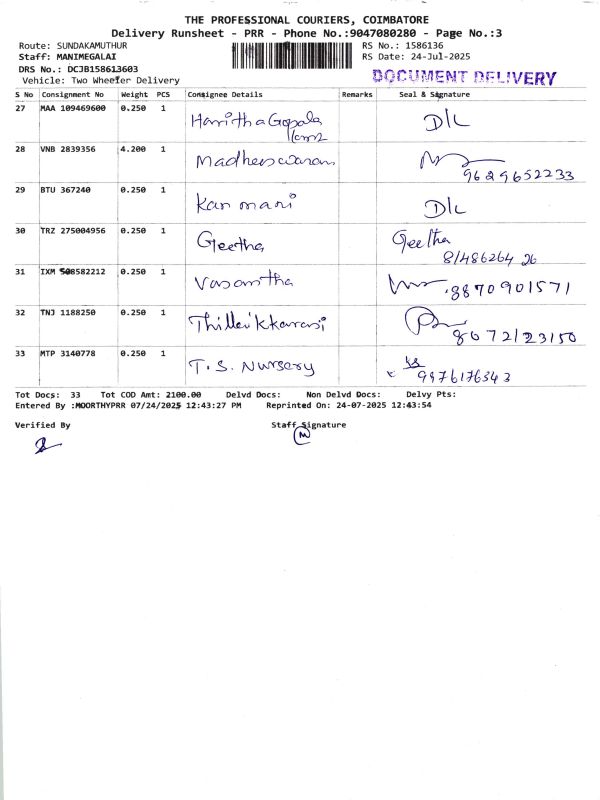 THE PROFESSIONAL COURIERS, COIMBATORE
Delivery Runsheet - PRR - Phone No.:9047080280 - Page No.:3
Route: SUNDAKAMUTHUR RS No.: 1586136
Staff: MANIMEGALAI RS Date: 24-Jul-2025
DRS No.: DCJB158613603
Vehicle: Two Wheeler Delivery DOCUMENT DELIVERY
S No Consignment No Weight PCS Consignee Details Remarks Seal & Signature
27 MAA 109469600 0.250 1 Haritha Gopala D/L
28 VNB 2839356 4.200 1 Madheswaran 9629652233
29 BTU 367240 0.250 1 Kanmani D/L
30 TRZ 275004956 0.250 1 Geetha Geetha
8148626426
31 IXM 508582212 0.250 1 Vasantha 8870901571
32 TNJ 1188250 0.250 1 Thillaikkarasi 8672123150
33 MTP 3140778 0.250 1 T.S. Nursery 9976176343
Tot Docs: 33 Tot COD Amt: 2100.00 Delvd Docs: Non Delvd Docs: Delvy Pts:
Entered By :MOORTHYPRR 07/24/2025 12:43:27 PM Reprinted On: 24-07-2025 12:43:54
Verified By Staff Signature
M